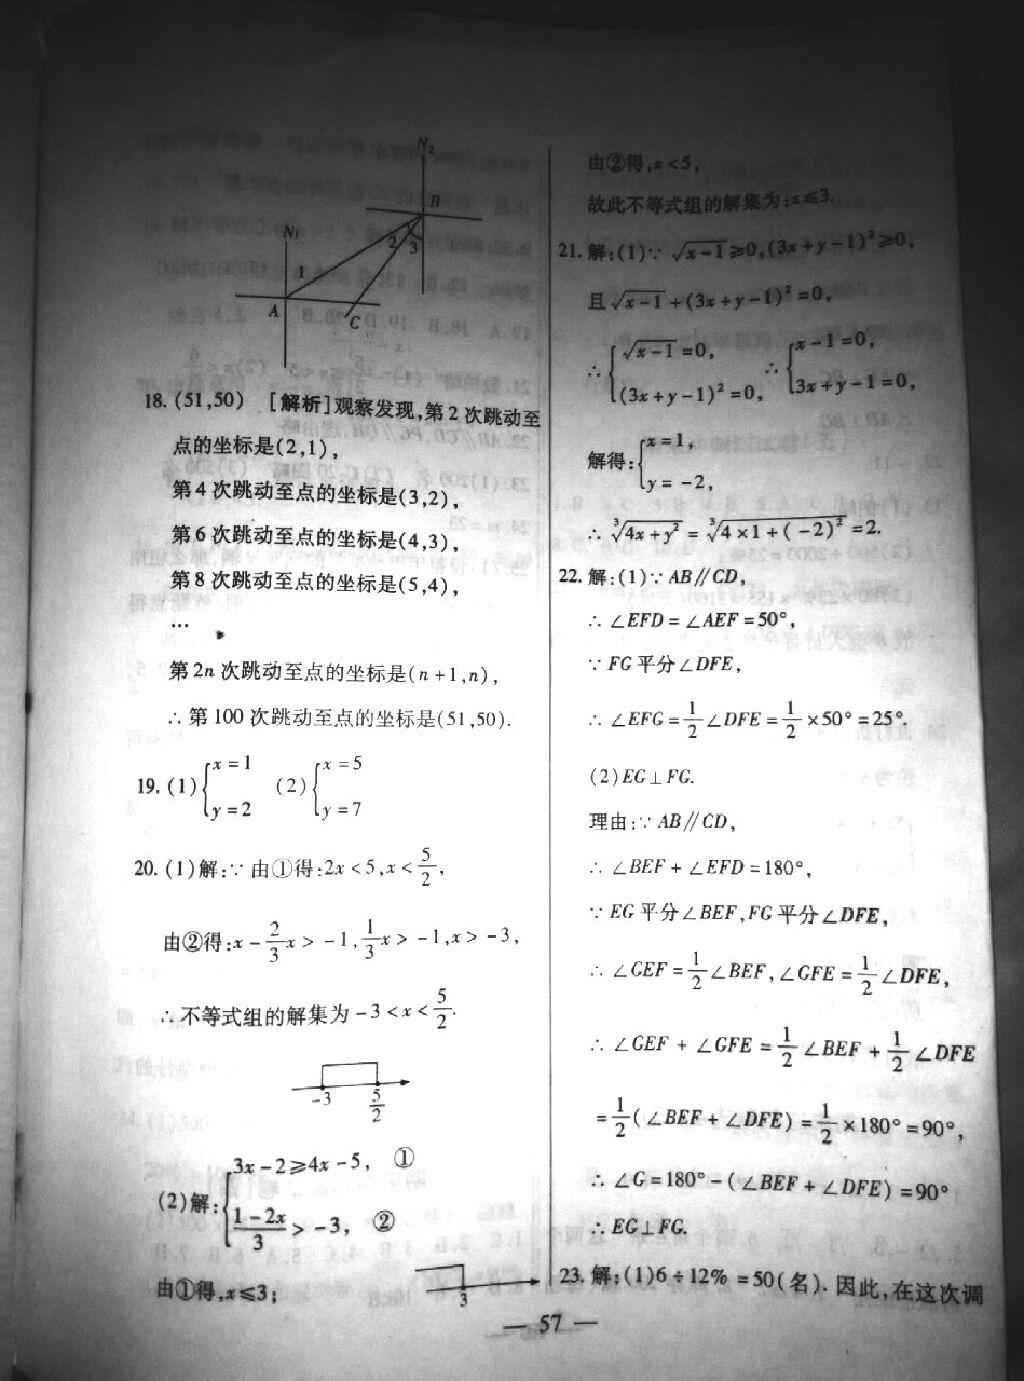 N₂
B
N₁
2
3
1
A
C
18. (51,50) [解析]观察发现,第2次跳动至
点的坐标是(2,1),
第4次跳动至点的坐标是(3,2),
第6次跳动至点的坐标是(4,3),
第8次跳动至点的坐标是(5,4),
…
第2n次跳动至点的坐标是(n+1,n),
∴第100次跳动至点的坐标是(51,50).
19. (1){x=1 (2){x=5
y=2 y=7
20. (1)解:∵由①得:2x<5,x<5/2,
由②得:x-2/3x>-1,1/3x>-1,x>-3,
∴不等式组的解集为-3<x<5/2.
-3 5/2
(2)解:{3x-2≥4x-5, ①
(1-2x)/3>-3, ②
由①得,x≤3;
3
由②得,x<5,
故此不等式组的解集为:x≤3.
21. 解:(1)∵√(x-1)≥0,(3x+y-1)²≥0,
且√(x-1)+(3x+y-1)²=0,
∴{√(x-1)=0, ∴{x-1=0,
(3x+y-1)²=0, 3x+y-1=0,
解得:{x=1,
y=-2,
∴∛(4x+y²)=∛(4×1+(-2)²)=2.
22. 解:(1)∵AB∥CD,
∴∠EFD=∠AEF=50°,
∵FG平分∠DFE,
∴∠EFG=1/2∠DFE=1/2×50°=25°.
(2)EG⊥FG.
理由:∵AB∥CD,
∴∠BEF+∠EFD=180°,
∵EG平分∠BEF,FG平分∠DFE,
∴∠GEF=1/2∠BEF,∠GFE=1/2∠DFE,
∴∠GEF+∠GFE=1/2∠BEF+1/2∠DFE
=1/2(∠BEF+∠DFE)=1/2×180°=90°,
∴∠G=180°-(∠BEF+∠DFE)=90°
∴EG⊥FG.
23. 解:(1)6÷12%=50(名).因此,在这次调
— 57 —